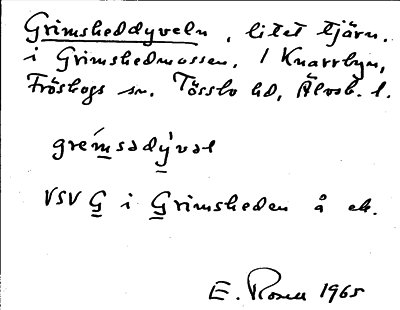 Grimsheddyveln, litet tjärn.
i Grimshedmossen. / Knarrbyn,
Fröskogs sn. Tössbo hd, Älvsb. l.
gremsadýval
VSV G i Grimsheden å ek.
E. Rosell 1965